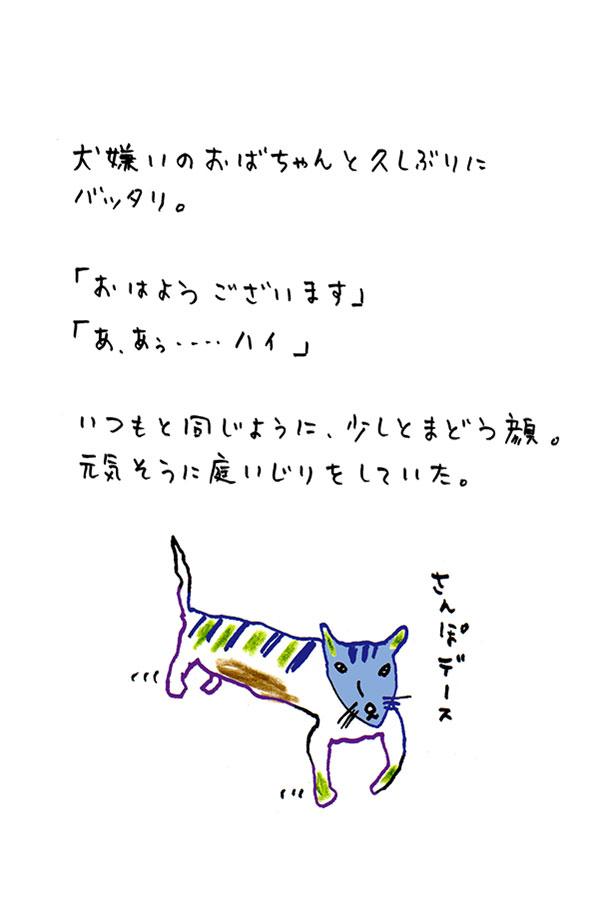 犬嫌いのおばちゃんと久しぶりに
バッタリ。
「おはようございます」
「あ、あぅ‥‥ハイ」
いつもと同じように、少しとまどう顔。
元気そうに庭いじりをしていた。
さんぽデース